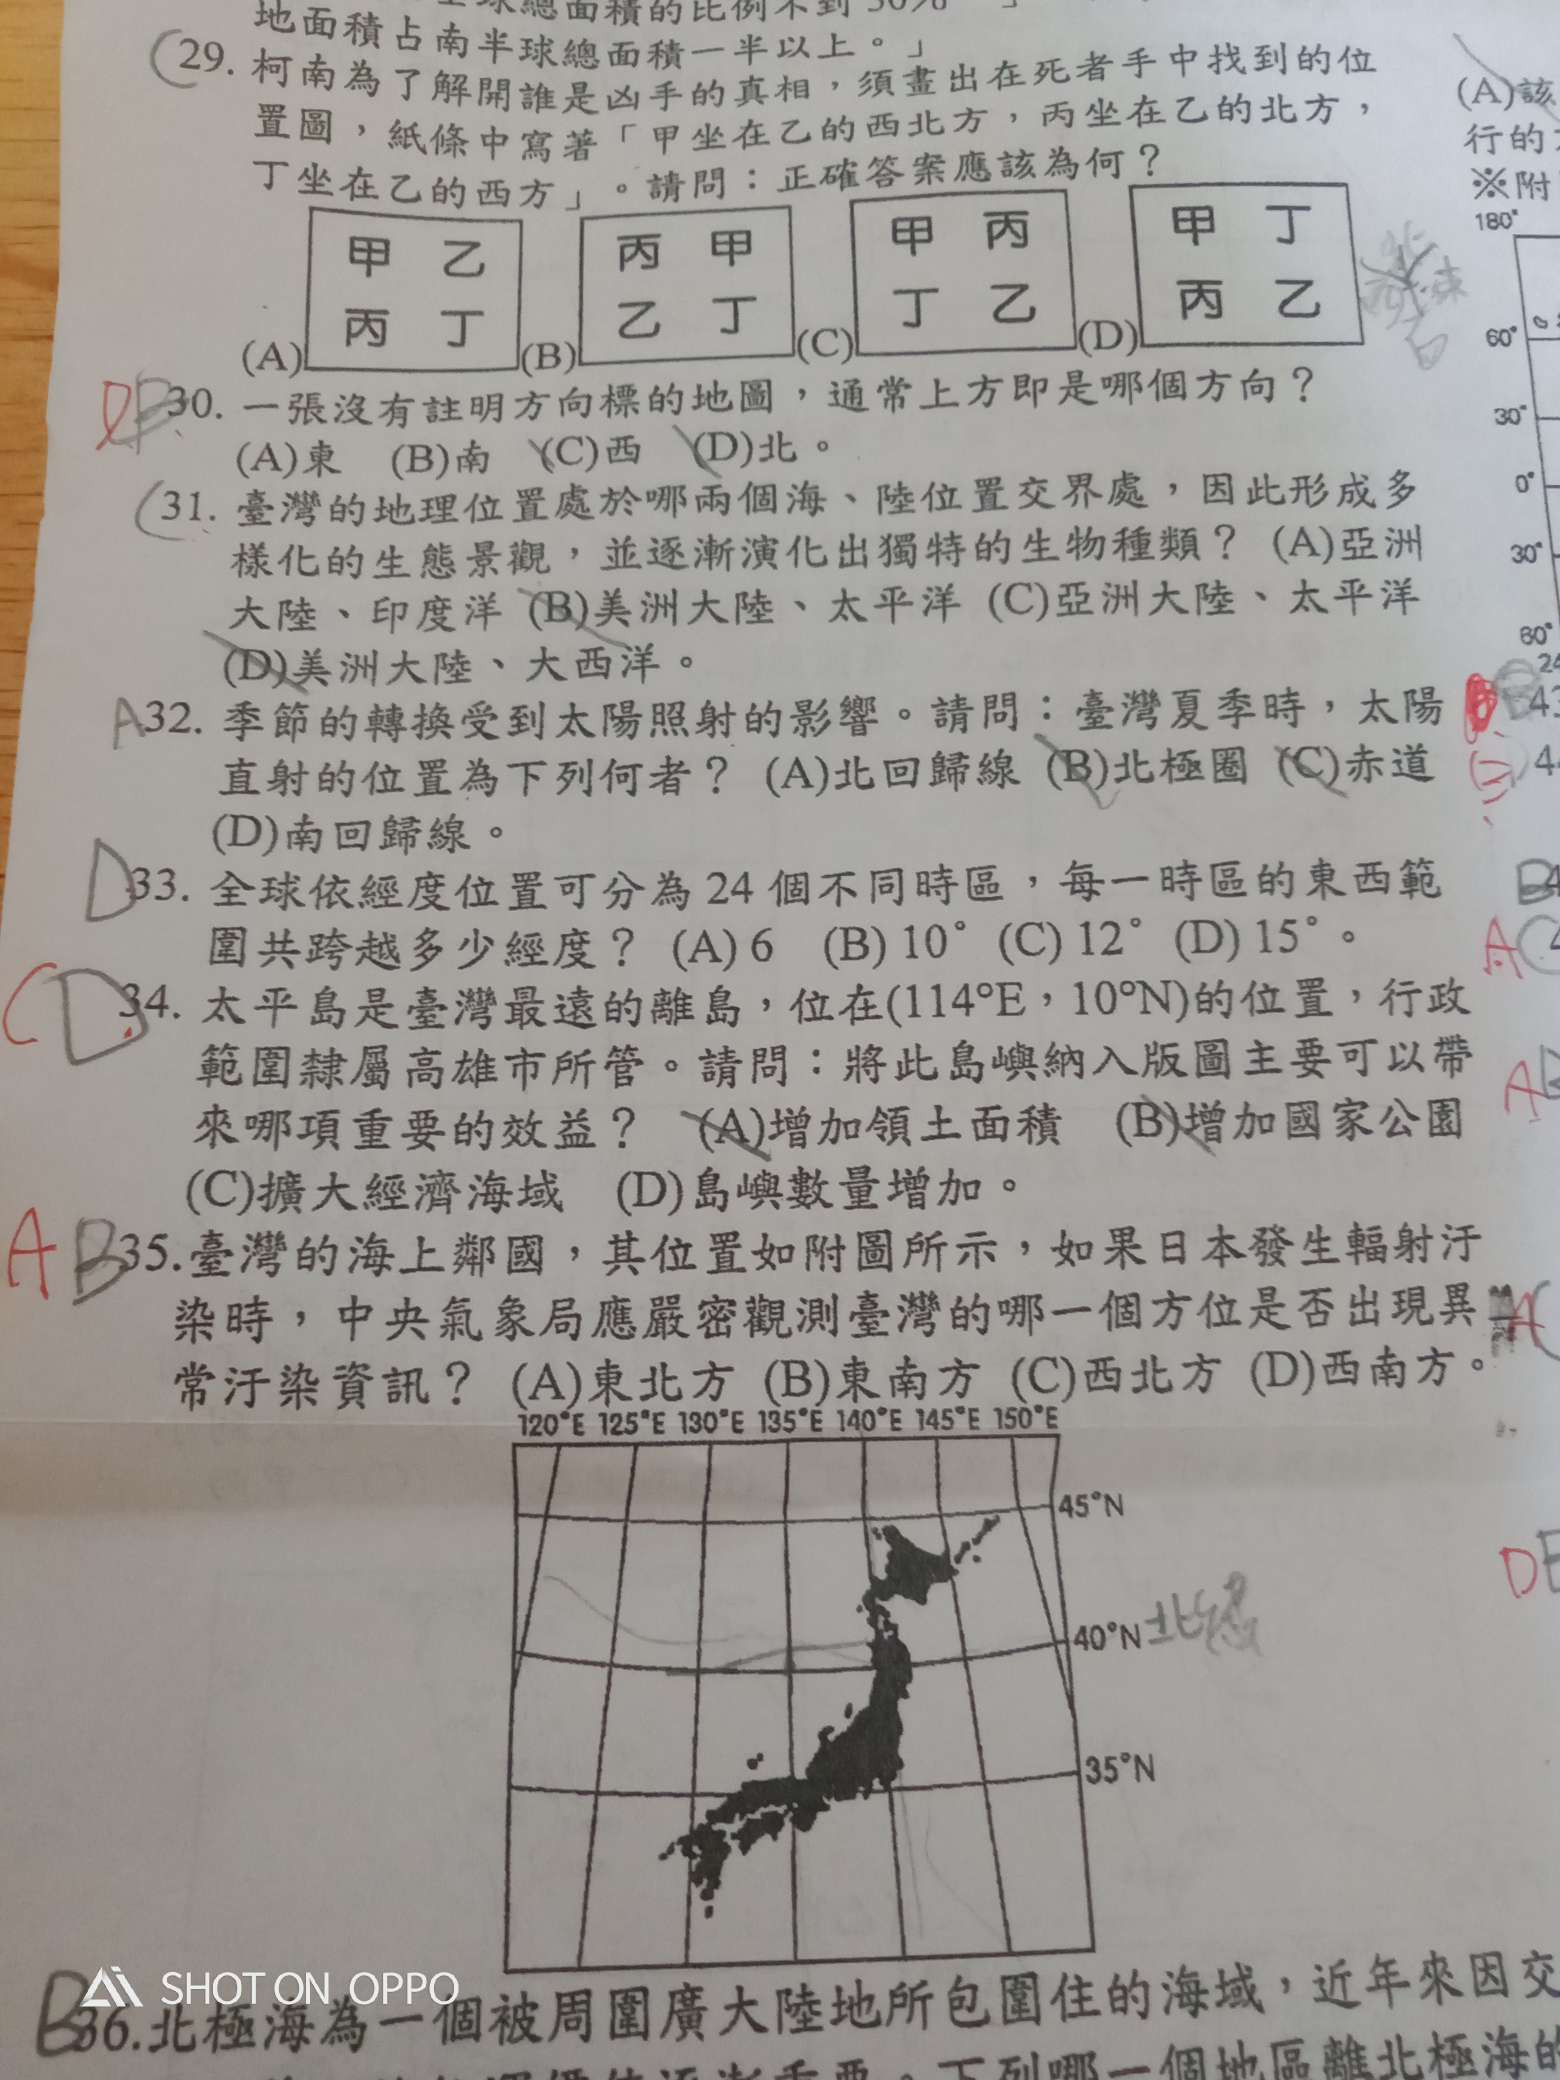 地面積占南半球總面積一半以上。」
29. 柯南為了解開誰是凶手的真相，須畫出在死者手中找到的位
置圖，紙條中寫著「甲坐在乙的西北方，丙坐在乙的北方，
丁坐在乙的西方」。請問：正確答案應該為何？
甲 乙
丙 丁
(A)
丙 甲
乙 丁
(B)
甲 丙
丁 乙
(C)
甲 丁
丙 乙
(D)
30. 一張沒有註明方向標的地圖，通常上方即是哪個方向？
(A)東 (B)南 (C)西 (D)北。
C 31. 臺灣的地理位置處於哪兩個海、陸位置交界處，因此形成多
樣化的生態景觀，並逐漸演化出獨特的生物種類？ (A)亞洲
大陸、印度洋 (B)美洲大陸、太平洋 (C)亞洲大陸、太平洋
(D)美洲大陸、大西洋。
A 32. 季節的轉換受到太陽照射的影響。請問：臺灣夏季時，太陽
直射的位置為下列何者？ (A)北回歸線 (B)北極圈 (C)赤道
(D)南回歸線。
D 33. 全球依經度位置可分為 24 個不同時區，每一時區的東西範
圍共跨越多少經度？ (A) 6 (B) 10° (C) 12° (D) 15°。
C D 34. 太平島是臺灣最遠的離島，位在(114°E，10°N)的位置，行政
範圍隸屬高雄市所管。請問：將此島嶼納入版圖主要可以帶
來哪項重要的效益？ (A)增加領土面積 (B)增加國家公園
(C)擴大經濟海域 (D)島嶼數量增加。
A B 35. 臺灣的海上鄰國，其位置如附圖所示，如果日本發生輻射汙
染時，中央氣象局應嚴密觀測臺灣的哪一個方位是否出現異
常汙染資訊？ (A)東北方 (B)東南方 (C)西北方 (D)西南方。
120°E 125°E 130°E 135°E 140°E 145°E 150°E
45°N
40°N
35°N
B 36. 北極海為一個被周圍廣大陸地所包圍住的海域，近年來因交
下列哪一個地區離北極海的
SHOT ON OPPO
(A)該
行的
※附
180°
60°
30°
0°
30°
60°